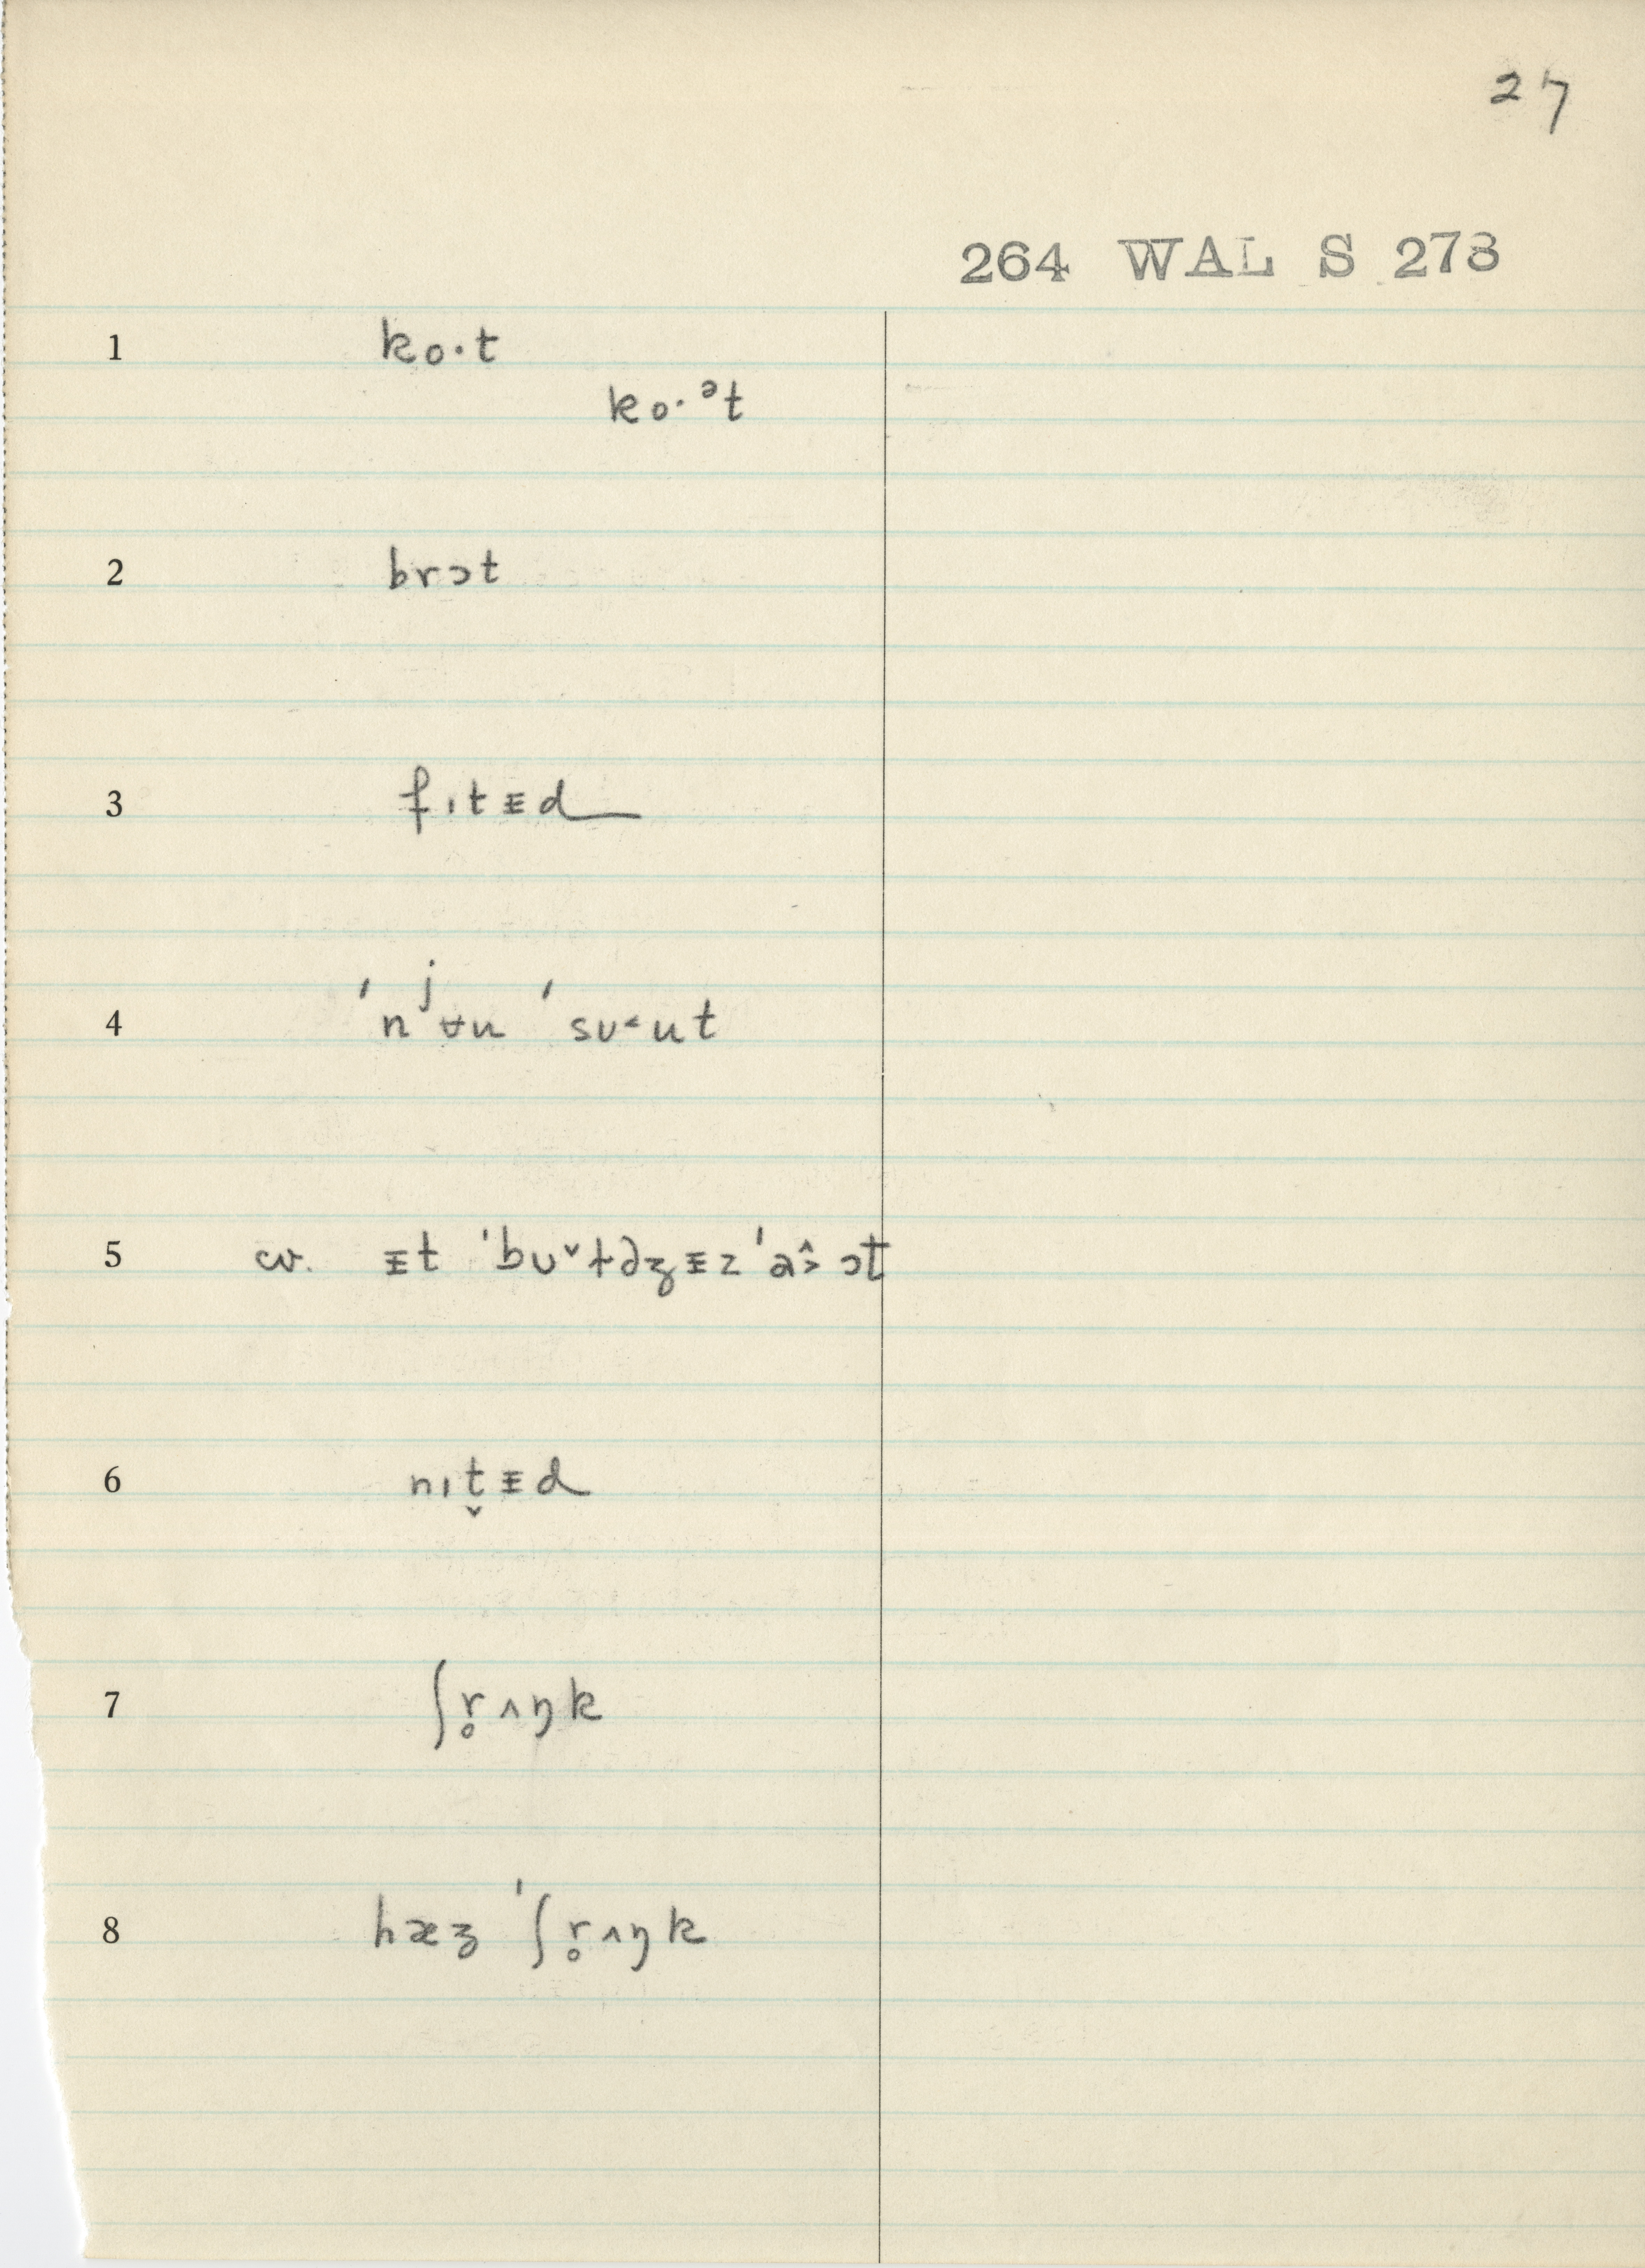 27
264 WAL S 273
1 ko·t
ko·ᵊt
2 brɔt
3 fɪtɪ̵d
4 ˈnʲʉu ˈsu˂ut
5 cv. ɪ̵t ˈbʊˇldʒɪ̵z ˈaɔt
6 nɪt̬ɪ̵d
7 ʃr̥ʌŋk
8 hæʒ ˈʃr̥ʌŋk